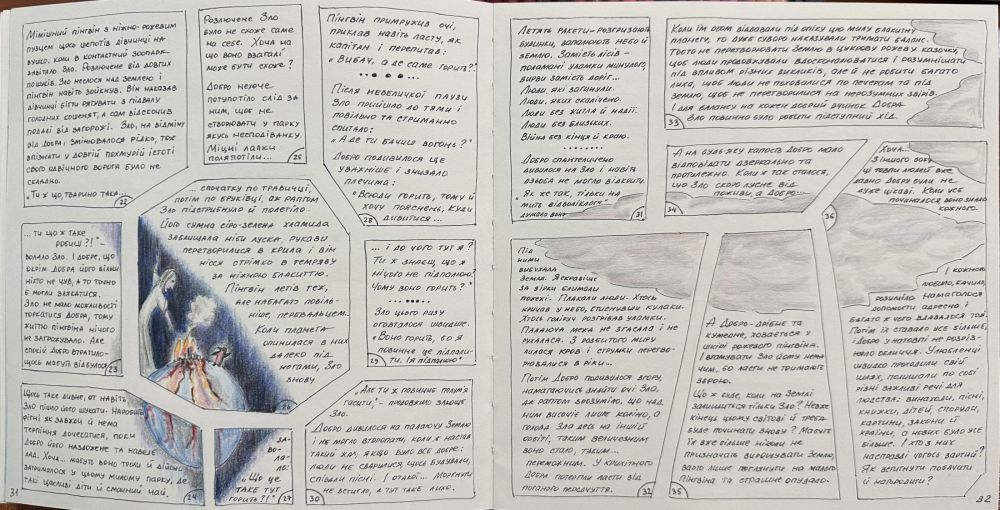 Мімішний пінгвін з ніжно-рожевим
пузцем щось цепотів дівчинці на
вушко, коли в контактний зоопарк
завітало Зло. Розлючене від довгих
пошуків. Зло неслося над землею і
пінгвін навіть зойкнув. Він наказав
дівчинці бігти рятувати з підвалу
голодних коченят, а сам відскочив
подалі від загорожі. Зло, на відміну
від Добра, змінювалося рідко, тож
впізнати у довгій похмурій істоті
свого одвічного ворога було не
складно.
„Ти х що тварино така...
22
Розлючене Зло
було не схоже саме
на себе. Хоча на
що воно взагалі
може бути схоже?
Добро нехоче
потупотіло слід за
ним, щоб не
створювати у парку
якусь несподіванку.
Міцні лапки
полятопіли...
25
Пінгвін примружив очі,
приклав навіть ласту, як
капітан і перепитав:
„Вибач, а де саме горить?"
Після невеличкої паузи
Зло прийшло до тями і
повільно та стриманно
спитало:
„А де ти бачиш вогонь?"
Добро подивилося ще
уважніше і знизало
плечима:
„Всюди горить, тому й
хочу пояснень, куди
дивитися...
28
... ти що ж таке
робиш?!"-
волало Зло. І добре, що
окрім Добра його більш
ніхто не чув, а то точно
б могли злякатися.
Зло не мало можливості
торкатися Добра, тому
життю пінгвіна нічого
не загрожувало. Але
спокій Добро втратило-
щось мабуть відбулося
23
... спочатку по травичці,
потім по бруківці, аж раптом
Зло підстрибнуло й полетіло.
Його сумна сіро-зелена хламида
заблищала ніби луска, рукави
перетворилися в крила і він
нісся стрімко в темряву
за ніжною блакиттю.
Пінгвін летів теж,
але набагато повіль-
ніше, перевальцем.
Коли планета
опинилася в них
далеко під
ногами, Зло
знову
26
... і до чого тут я?
Ти ж знаєш, що я
нічого не підпалюю!
Чому воно горить?"
Зло цього разу
оговталося швидше.
„Воно горить, бо я
повинне це підпали-
ти. І я підпалюю"
29
Щось таке дивне, от навіть
Зло пішло його шукати. Наробить
вічні як завжди й нема
терпіння дочекатися, поки
Добро його наздожене та наведе
лад. Хоча... мабуть воно трохи й дійсно
затрималося у цьому милому парку, де
такі щасливі діти й смачний чай.
24
за-
во-
ла-
ло:
„Що це
таке тут
горить?!"
27
„Але ти х повинне полум'я
гасити"- продовжило злюще
Зло.
Добро дивилося на палаючу Землю
і не могло второпати, коли ж настав
такий жах, якщо було все добре.
Люди не сварилися, щось будували,
співали пісні. І отакої... Моргнути
не встигло, а тут таке лихо.
30
31
Летять ракети - розгризають
будинки, заполонють небо й
землю. Замість лісів -
поламані уламки минулого,
вирви замість доріг...
Люди, які загинули.
Люди, яких скалічено.
Люди без житла й надії.
Люди без близьких.
Війна без кінця й краю.
Добро спантеличено
дивилося на Зло і навіть
дзьоба не могло відкрити.
„Як же так, тільки на
мить відволіклося"
думало воно
31
Коли їм отом віддавали під опіку цю милу блакитну
планету, то дуже суворо наказували тримати баланс.
Тобто не перетворювати Землю в цукрову рожеву казочку,
щоб люди продовжували вдосконалюватися і розумнішати
під впливом різних викликів, але й не робити багато
лиха, щоб люди не поховалися по печерам та під
землю, щоб не перетворилися на нерозумних звірів.
І для балансу на кожен добрий вчинок Добра
Зло повинно було робити підступний хід.
33
А на будь-яку капость Добро мало
відповідати дзеркально та
протилежно. Коли ж так сталося,
що Зло скоро лусне від
поживи, а Добро...
34
Хоча...
З іншого боку
ці товпи людей вже
давно Добру були не
дуже цікаві. Коли усе
починалося, воно знало
кожного.
36
Під
ними
вирувала
Земля. Яскравіше
за зірки блимали
пожежі. Плакали люди. Хтось
кричав у небо, стиснувши кулаки.
Хтось поміж розгрібав уламки.
Палаюча межа не згасала і не
рухалася. З розбитого миру
лилася кров і струмки перетво-
рювалися в ріки...
Потім Добро подивилося вгору,
намагаючись знайти очі Зла,
аж раптом зрозуміло, що над
ним височіє лише коліно, а
голова Зла десь на іншій
орбіті, таким величезним
воно стало, таким...
переможним. У крихітного
Добра потерпли ласти від
поганого передчуття.
32
А Добро - дрібне та
кумедне, ховається у
шкірі рожевого пінгвіна.
І втамувати Зло йому нема
чим, бо ласти не тримають
зброю.
Що ж буде, коли на Землі
залишиться тільки Зло? Невже
кінець цьому світові й треба
буде починати знову? Мабуть
їх вже більше ніколи не
призначать вирощувати Землю,
варто лише поглянути на малого
Пінгвіна та страшне опудало.
35
І кожного
любило, бачило,
розуміло, намагалося
допомогти адресно, і
багато з чого вдавалося тоді.
Потім їх ставало усе більше,
і Добро у натовпі не розріз-
няло облич. Улюбленці
швидко проходили свій
шлях, лишили по собі
різні важливі речі для
людства: винаходи, пісні,
книжки, дітей, споруди,
картини, закони й
країни, а нових було усе
більше. І хто з них
насправді чогось вартий?
Як встигнути побачити
й нагородити?
32